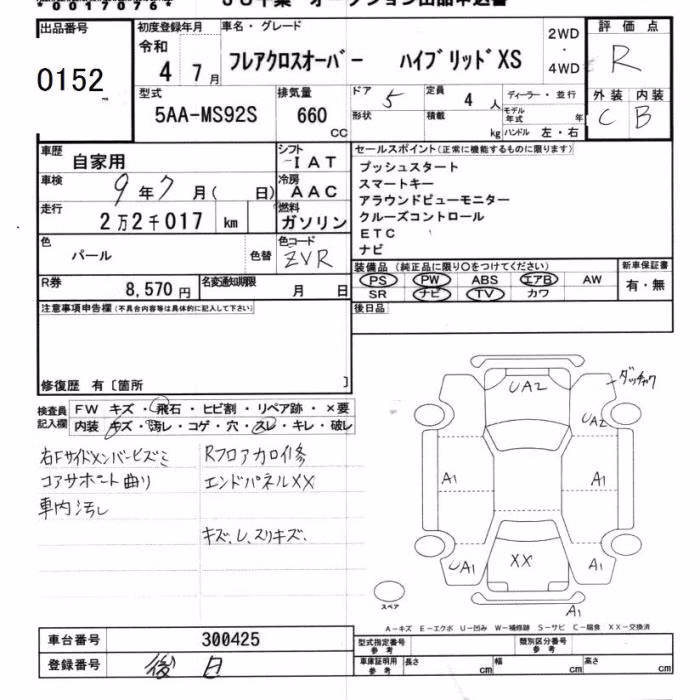 00170764
JU千葉 オークション出品申込書
出品番号
0152
初度登録年月
令和
4 年 7 月
車名・グレード
フレアクロスオーバー ハイブリッドXS
2WD
・
4WD
評価点
R
外装 内装
C B
型式
5AA-MS92S
排気量
660
CC
ドア 5
形状
定員 4 人
積載 kg
ディーラー・並行
モデル年式 年
ハンドル 左・右
車歴
自家用
車検
9 年 7 月( 日)
走行
2万2千017 km
色
パール
色替
シフト
IAT
冷房
AAC
燃料
ガソリン
色コード
ZVR
R券
8,570 円
名変通知期限
月 日
セールスポイント(正常に機能するものに限ります)
プッシュスタート
スマートキー
アラウンドビューモニター
クルーズコントロール
ETC
ナビ
装備品 (純正品に限り○をつけてください)
PS PW ABS エアB AW
SR ナビ TV カワ
新車保証書
有・無
後日品
注意事項申告欄(不具合内容等は具体的に記入して下さい)
修復歴 有〔箇所 〕
検査員
記入欄
FW キズ・飛石・ヒビ割・リペア跡・×要
内装 キズ・汚レ・コゲ・穴・スレ・キレ・破レ
右Fサイドメンバーヒズミ
コアサポート曲り
車内汚レ
Rフロアカロイ修
エンドパネルXX
キズ、U、スリキズ、
UA2
ダッチャク
UA2
A1
A1
UA1
XX
A1
A1
スペア
A-キズ E-エクボ U-凹み W-補修跡 S-サビ C-腐食 XX-交換済
車台番号
300425
登録番号
後日
型式指定番号
参考
類別区分番号
参考
車庫証明用
参考
長さ cm
幅 cm
高さ cm